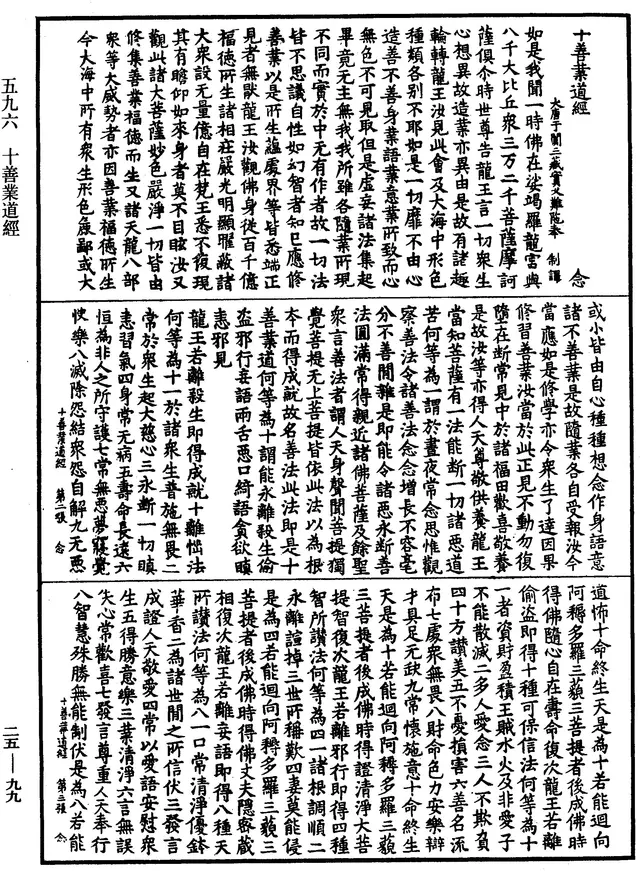 十善業道經
大唐于闐三藏實叉難陀奉 制譯
念
如是我聞一時佛在娑竭羅龍宮與
八千大比丘衆三万二千菩薩摩訶
薩俱尒時世尊告龍王言一切衆生
心想異故造業亦異由是故有諸趣
輪轉龍王汝見此會及大海中形色
種類各別不耶如是一切靡不由心
造善不善身業語業意業所致而心
無色不可見取但是虛妄諸法集起
畢竟无主無我我所雖各隨業所現
不同而實於中无有作者故一切法
皆不思議自性如幻智者知已應修
善業以是所生蘊處界等皆悉端正
見者無猒龍王汝觀佛身從百千億
福德所生諸相莊嚴光明顯曜蔽諸
大衆設无量億自在梵王悉不復現
其有瞻仰如來身者莫不目眩汝又
觀此諸大菩薩妙色嚴淨一切皆由
修集善業福德而生又諸天龍八部
衆等大威勢者亦因善業福德所生
今大海中所有衆生形色麁鄙或大
或小皆由自心種種想念作身語意
諸不善業是故隨業各自受報汝今
當應如是修學亦令衆生了達因果
修習善業汝當於此正見不動勿復
墮在斷常見中於諸福田歡喜敬養
是故汝等亦得人天尊敬供養龍王
當知菩薩有一法能斷一切諸惡道
苦何等為一謂於晝夜常念思惟觀
察善法令諸善法念念增長不容毫
分不善間雜是即能令諸惡永斷善
法圓滿常得親近諸佛菩薩及餘聖
衆言善法者謂人天身聲聞菩提獨
覺菩提无上菩提皆依此法以為根
本而得成就故名善法此法即是十
善業道何等為十謂能永離殺生偷
盜邪行妄語兩舌惡口綺語貪欲瞋
恚邪見
龍王若離殺生即得成就十離惱法
何等為十一於諸衆生普施無畏二
常於衆生起大慈心三永斷一切瞋
恚習氣四身常无病五壽命長遠六
恒為非人之所守護七常無惡夢寢覺
快樂八滅除怨結衆怨自解九无惡
十善業道經 第二張 念
道怖十命終生天是為十若能迴向
阿耨多羅三藐三菩提者後成佛時
得佛隨心自在壽命復次龍王若離
偷盜即得十種可保信法何等為十
一者資財盈積王賊水火及非愛子
不能散滅二多人愛念三人不欺負
四十方讚美五不憂損害六善名流
布七處衆無畏八財命色力安樂辯
才具足无缺九常懷施意十命終生
天是為十若能迴向阿耨多羅三藐
三菩提者後成佛時得證清淨大菩
提智復次龍王若離邪行即得四種
智所讚法何等為四一諸根調順二
永離諠掉三世所稱歎四妻莫能侵
是為四若能迴向阿耨多羅三藐三
菩提者後成佛時得佛丈夫隱密藏
相復次龍王若離妄語即得八種天
所讚法何等為八一口常清淨優鉢
華香二為諸世間之所信伏三發言
成證人天敬愛四常以愛語安慰衆
生五得勝意樂三業清淨六言無誤
失心常歡喜七發言尊重人天奉行
八智慧殊勝無能制伏是為八若能
十善業道經 第三張 念
五九六 十善業道經
二五—九九